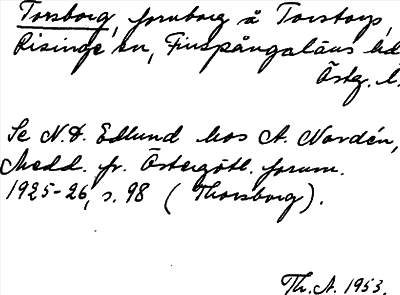 Torsborg, fornborg å Torstorp,
Risinge sn, Finspångaläns hd
Östg. l.
Se N.D. Edlund hos A. Nordén,
Medd. fr. Östergötl. fornm.
1925-26, s. 98 (Thorsborg).
Th. A. 1953.